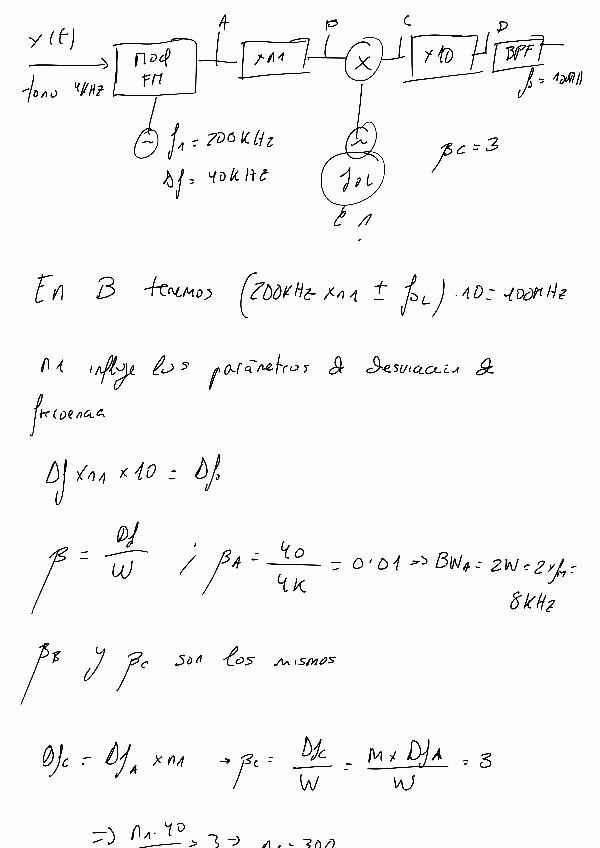 A B C D
x(t) Mod FM ×n1 × ×10 BPF
tono 4KHz f0 = 100M
f1 = 200KHz βC = 3
Δf = 40KHz fOL
En B tenemos (200KHz ×n1 ± fOL) · 10 = 100MHz
n1 influye los parámetros de desviación de
frecuencia
Δf ×n1 × 10 = Δf0
β = Δf / W ; βA = 40 / 4K = 0'01 => BWA = 2W = 2×fm =
8KHz
βB y βC son los mismos
ΔfC = ΔfA ×n1 → βC = ΔfC / W = n1 × ΔfA / W = 3
=> n1·40 = 3 => n1 = 300